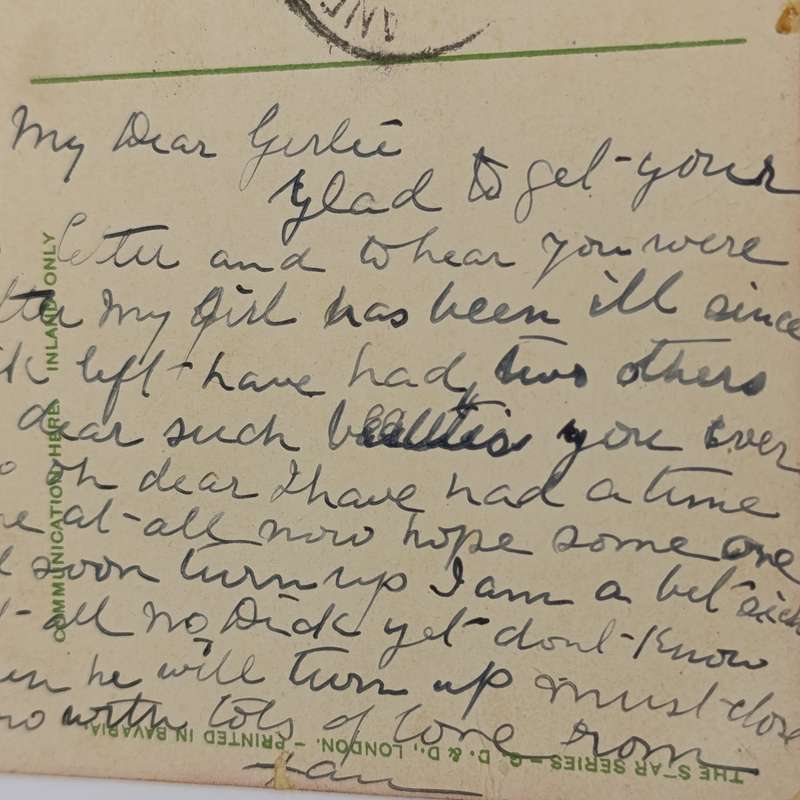 My Dear Gertie
Glad to get your
letter and to hear you were
tter My Girl has been ill since
k left have had two others
dear such you ever
oh dear I have had a time
ne at all now hope some one
l soon turn up I am a bit sick
t all no Dick yet dont know
en he will turn up must close
no with lots of love from
COMMUNICATION HERE. INLAND ONLY
THE STAR SERIES – G. D. & D., LONDON. – PRINTED IN BAVARIA.